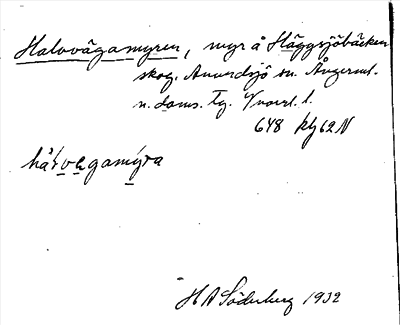 Halovägamyren, myr å Häggsjöbäcken
skog. Anundsjö sn. Ångerml.
n. doms. Tg.
648 kbl62N
håɫvegamýra
H A Söderberg 1932